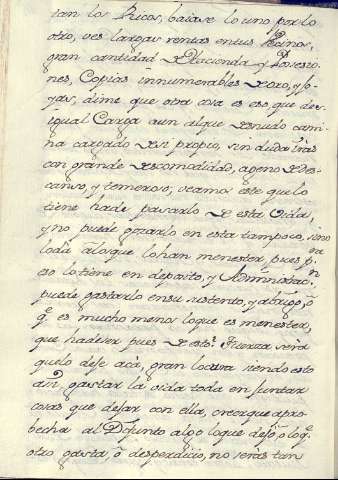 tan los Ricos, baiase lo uno por lo
otro, ves largas rentas en tus Reinos,
gran cantidad de Hacienda y Posesio
nes, Copias innumerables de oro, y Jo
yas, dime que otra cosa es eso que des
igual Carga aun al que desnudo cami
na cargado de si propio, sin duda irás
con grande descomodidad, ageno de des
canso, y temeroso, veamos este que lo
tiene hade pasarlo de esta Vida,
y no puede gozarlo en esta tampoco, sino
lo da á los que lo han menester, pues
eso lo tiene en deposito, y Administracn
puede gastarlo en su sustento, y abrigo, ó
q.e es mucho menos lo que es menester,
que hadeser pues de esto? Fuerza será
que lo deje acá, gran locura siendo esto
asi gastar la vida toda en juntar
cosas que dejar con ella, creo que apro
becha al Difunto algo lo que dejó, ó lo q.e
otro gasta, ó desperdicio, no serás tan